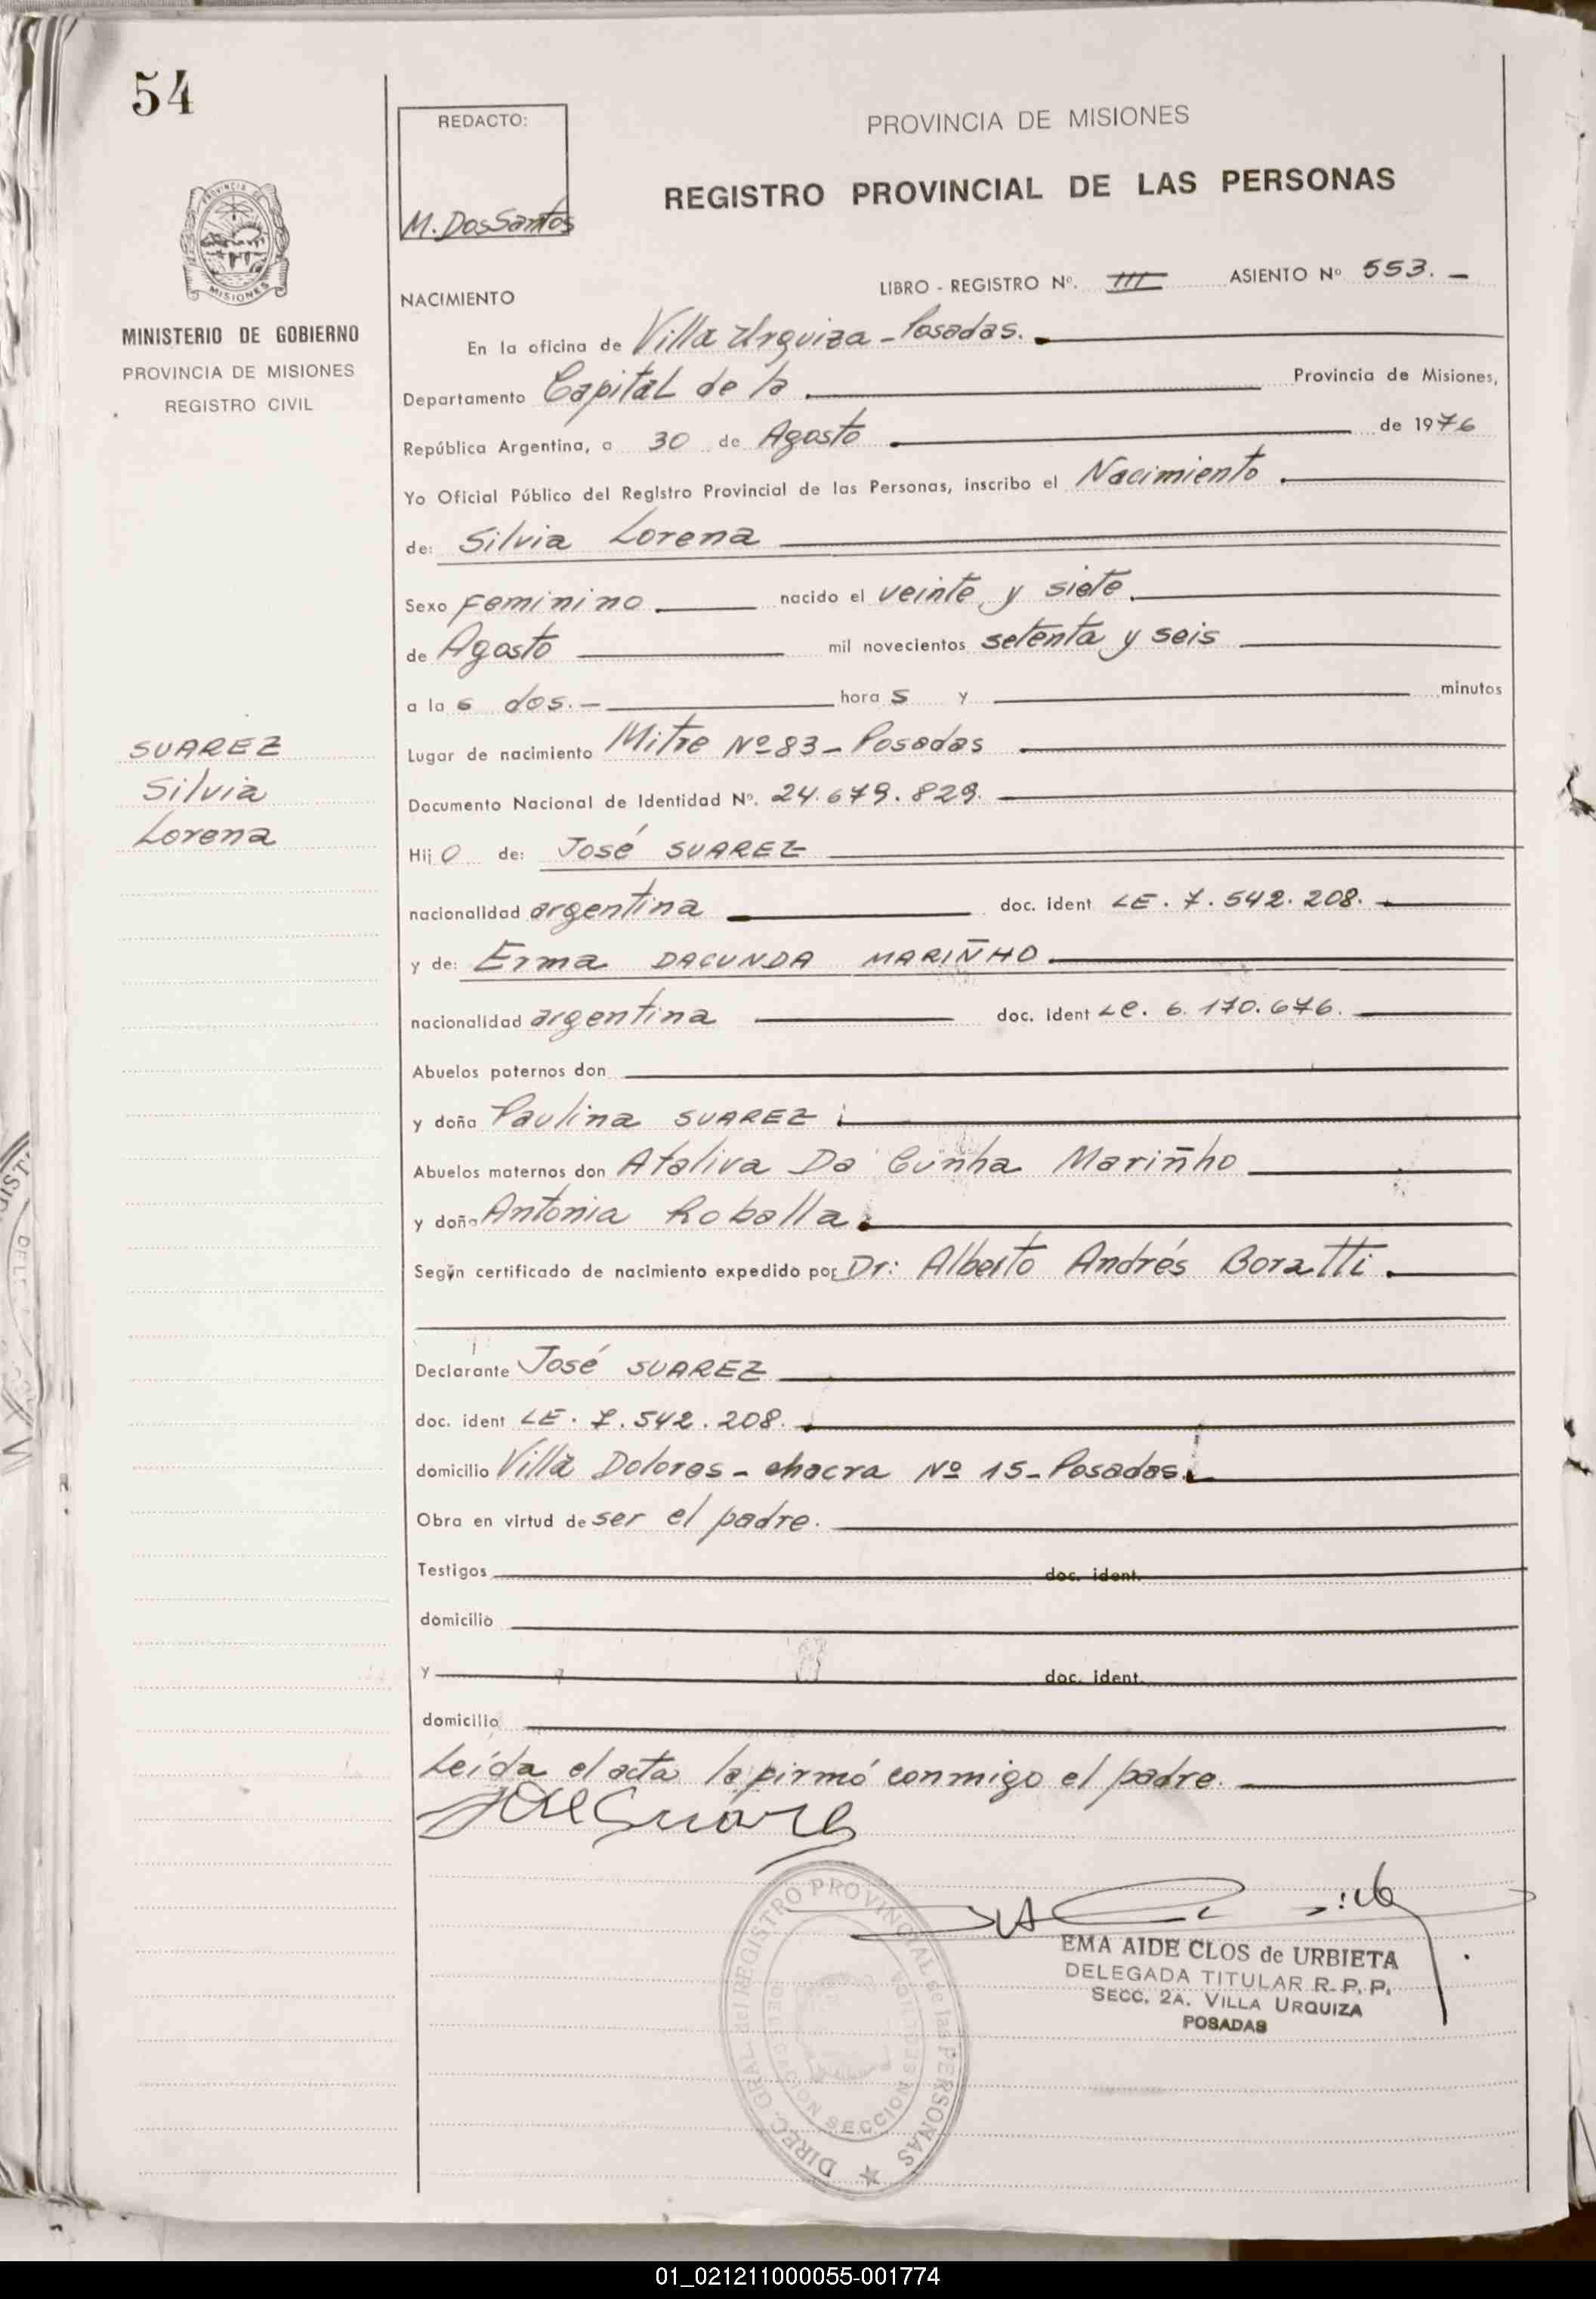 54
REDACTO:
M. DosSantos
PROVINCIA DE MISIONES
REGISTRO PROVINCIAL DE LAS PERSONAS
PROVINCIA DE
MISIONES
MINISTERIO DE GOBIERNO
PROVINCIA DE MISIONES
REGISTRO CIVIL
NACIMIENTO
LIBRO - REGISTRO Nº. III ASIENTO Nº 553. -
En la oficina de Villa Urquiza - Posadas.
Departamento Capital de la Provincia de Misiones,
República Argentina, a 30 de Agosto de 1976
Yo Oficial Público del Registro Provincial de las Personas, inscribo el Nacimiento
de: Silvia Lorena
Sexo Feminino nacido el veinte y siete
de Agosto mil novecientos setenta y seis
a la s dos.- hora s y minutos
SUAREZ
Silvia
Lorena
Lugar de nacimiento Mitre Nº 83 - Posadas
Documento Nacional de Identidad Nº. 24.679.829.
Hij O de: José SUAREZ
nacionalidad argentina doc. ident LE. 7.542.208.
y de: Erma DACUNDA MARIÑHO
nacionalidad argentina doc. ident LC. 6.170.676.
Abuelos paternos don
y doña Paulina SUAREZ
Abuelos maternos don Ataliva Da Cunha Mariñho
y doña Antonia Roballa.
Según certificado de nacimiento expedido por Dr: Alberto Andrés Boratti.
Declarante José SUAREZ
doc. ident LE. 7.542.208.
domicilio Villa Dolores - chacra Nº 15 - Posadas.
Obra en virtud de ser el padre.
Testigos doc. ident.
domicilio
y doc. ident.
domicilio
Leída el acta la firmó conmigo el padre.
José Suarez
DIREC. GRAL del REGISTRO PROVINCIAL de las PERSONAS
DELEGACION SECCION
EMA AIDE CLOS de URBIETA
DELEGADA TITULAR R. P. P.
SECC. 2A. VILLA URQUIZA
POSADAS
01_021211000055-001774